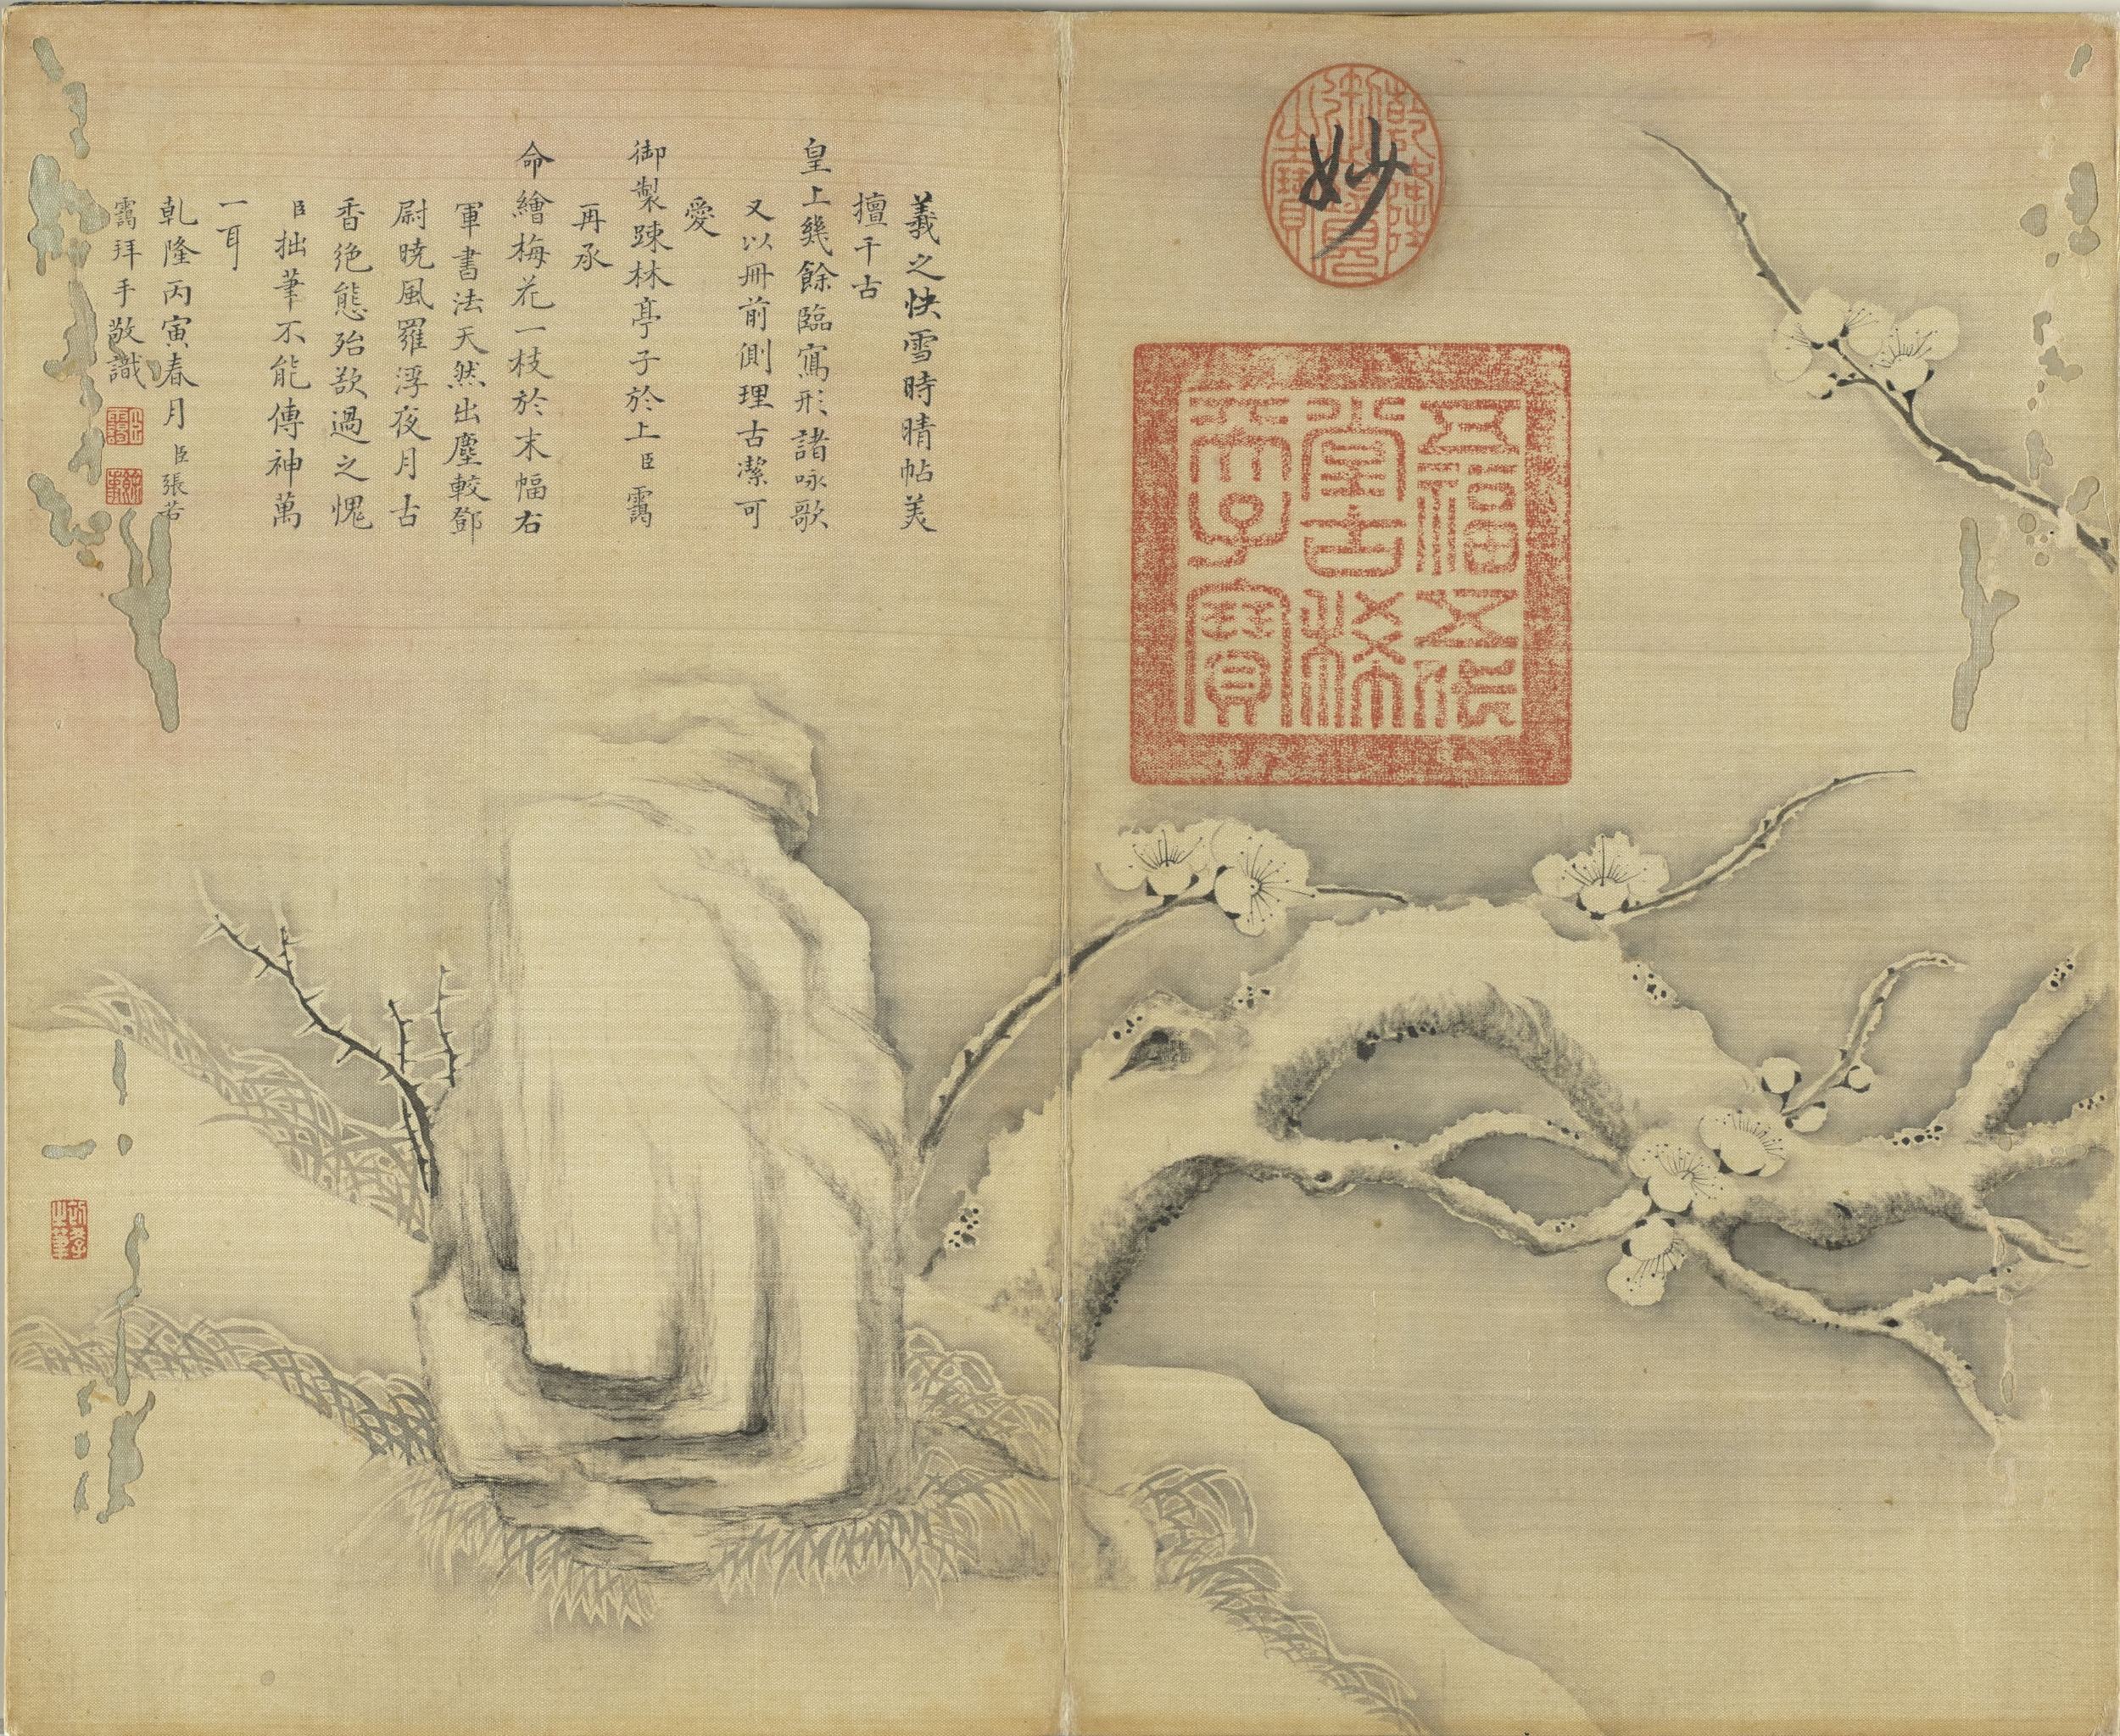 妙
乾隆御覽之寶
五福五代
堂古稀
天子寶
羲之快雪時晴帖美
擅千古
皇上幾餘臨寫形諸咏歌
又以冊前側理古潔可
愛
御製踈林亭子於上臣靄
再承
命繪梅花一枝於末幅右
軍書法天然出塵較鄧
尉曉風羅浮夜月古
香絶態殆欲過之愧
臣拙筆不能傳神萬
一耳
乹隆丙寅春月臣張若
靄拜手敬識
臣靄